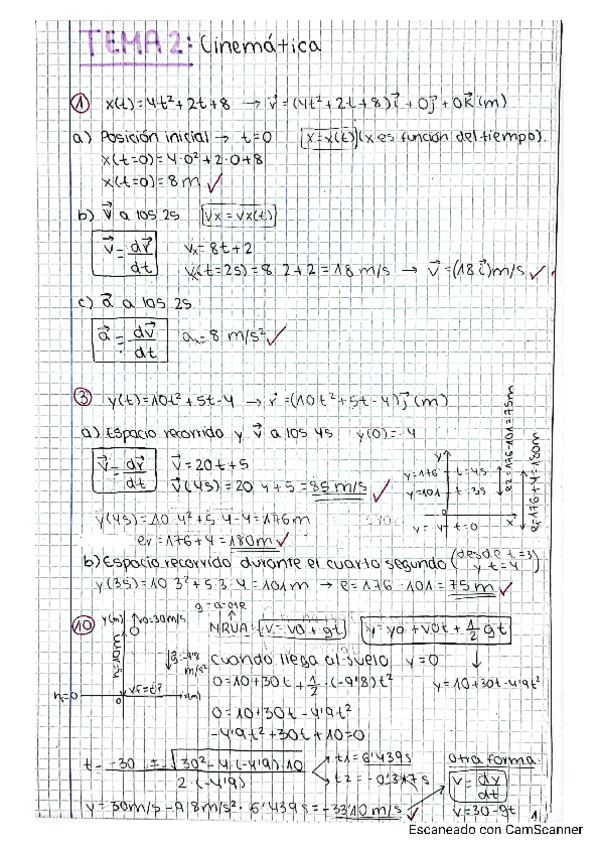 TEMA 2: Cinemática
① x(t)=4t²+2t+8 → v⃗=(4t²+2t+8)i⃗+0j⃗+0k⃗(m)
a) Posición inicial → t=0 x=x(t) (x es función del tiempo).
x(t=0)=4·0²+2·0+8
x(t=0)=8m ✓
b) v⃗ a los 2s vx=vx(t)
v⃗=dr⃗/dt vx=8t+2
vx(t=2s)=8·2+2=18 m/s → v⃗=(18i⃗)m/s ✓
c) a⃗ a los 2s
a⃗=dv⃗/dt ax=8 m/s² ✓
③ y(t)=10t²+5t-4 → r⃗=(10t²+5t-4)j⃗(m)
a) Espacio recorrido y v⃗ a los 4s y(0)=-4
v⃗=dr⃗/dt v⃗=20t+5
v⃗(4s)=20·4+5=85m/s ✓
y
y=176 t=4s
y=101 t=3s
0
x
y=-4 t=0
e2=176-101=75m
e1=176+4=180m
y(4s)=10·4²+5·4-4=176m
er=176+4=180m ✓
b) Espacio recorrido durante el cuarto segundo (desde t=3 y t=4)
y(3s)=10·3²+5·3-4=101m → e=176-101=75m ✓
⑩ y(m) v0=30m/s
MRUA: v=v0+gt y=y0+v0t+1/2gt
g=-9'8 m/s²
cuando llega al suelo y=0
0=10+30t+1/2·(-9'8)t² y=10+30t-4'9t²
vf=t?
x(m)
0
0=10+30t-4'9t²
-4'9t²+30t+10=0
t=-30±√30²-4·(-4'9)·10/2·(-4'9) t1=6'439s
t2=-0'317s
otra forma:
v=dy/dt
v=30-gt
v=30m/s-9'8m/s²·6'439s=-33'10m/s ✓
1
Escaneado con CamScanner